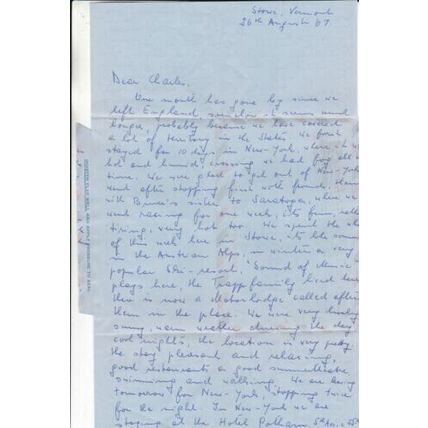 Stowe, Vermont
26th August 67
Dear Charles,
One month has gone by since we
left England, somehow it seems much
longer, probably because we have covered
a lot of territory in the States, we first
stayed for 10 days in New-York, where it was
hot and humid, crossing we had fog all
time. We were glad to get out of New-York
went after stopping
with sister to Saratoga, where we
went racing for one week, its fun,
tiring, very hot too. We spent the
of this week here in Stowe, its like
in the Austrian Alps, in winter a very
popular Ski-resort. 'Sound of Music'
plays here, the Trapp family lived here
there is now a Motorlodge called after
them in the place. We were very lucky
sunny, warm weather during the day
cool nights, the location is very pretty
the stay pleasant and relaxing,
good restaurants a good
swimming and walking. We are
tomorrow for New-York, stopping twice
for the night. In New-York we are
staying at the Hotel 5th Ave.